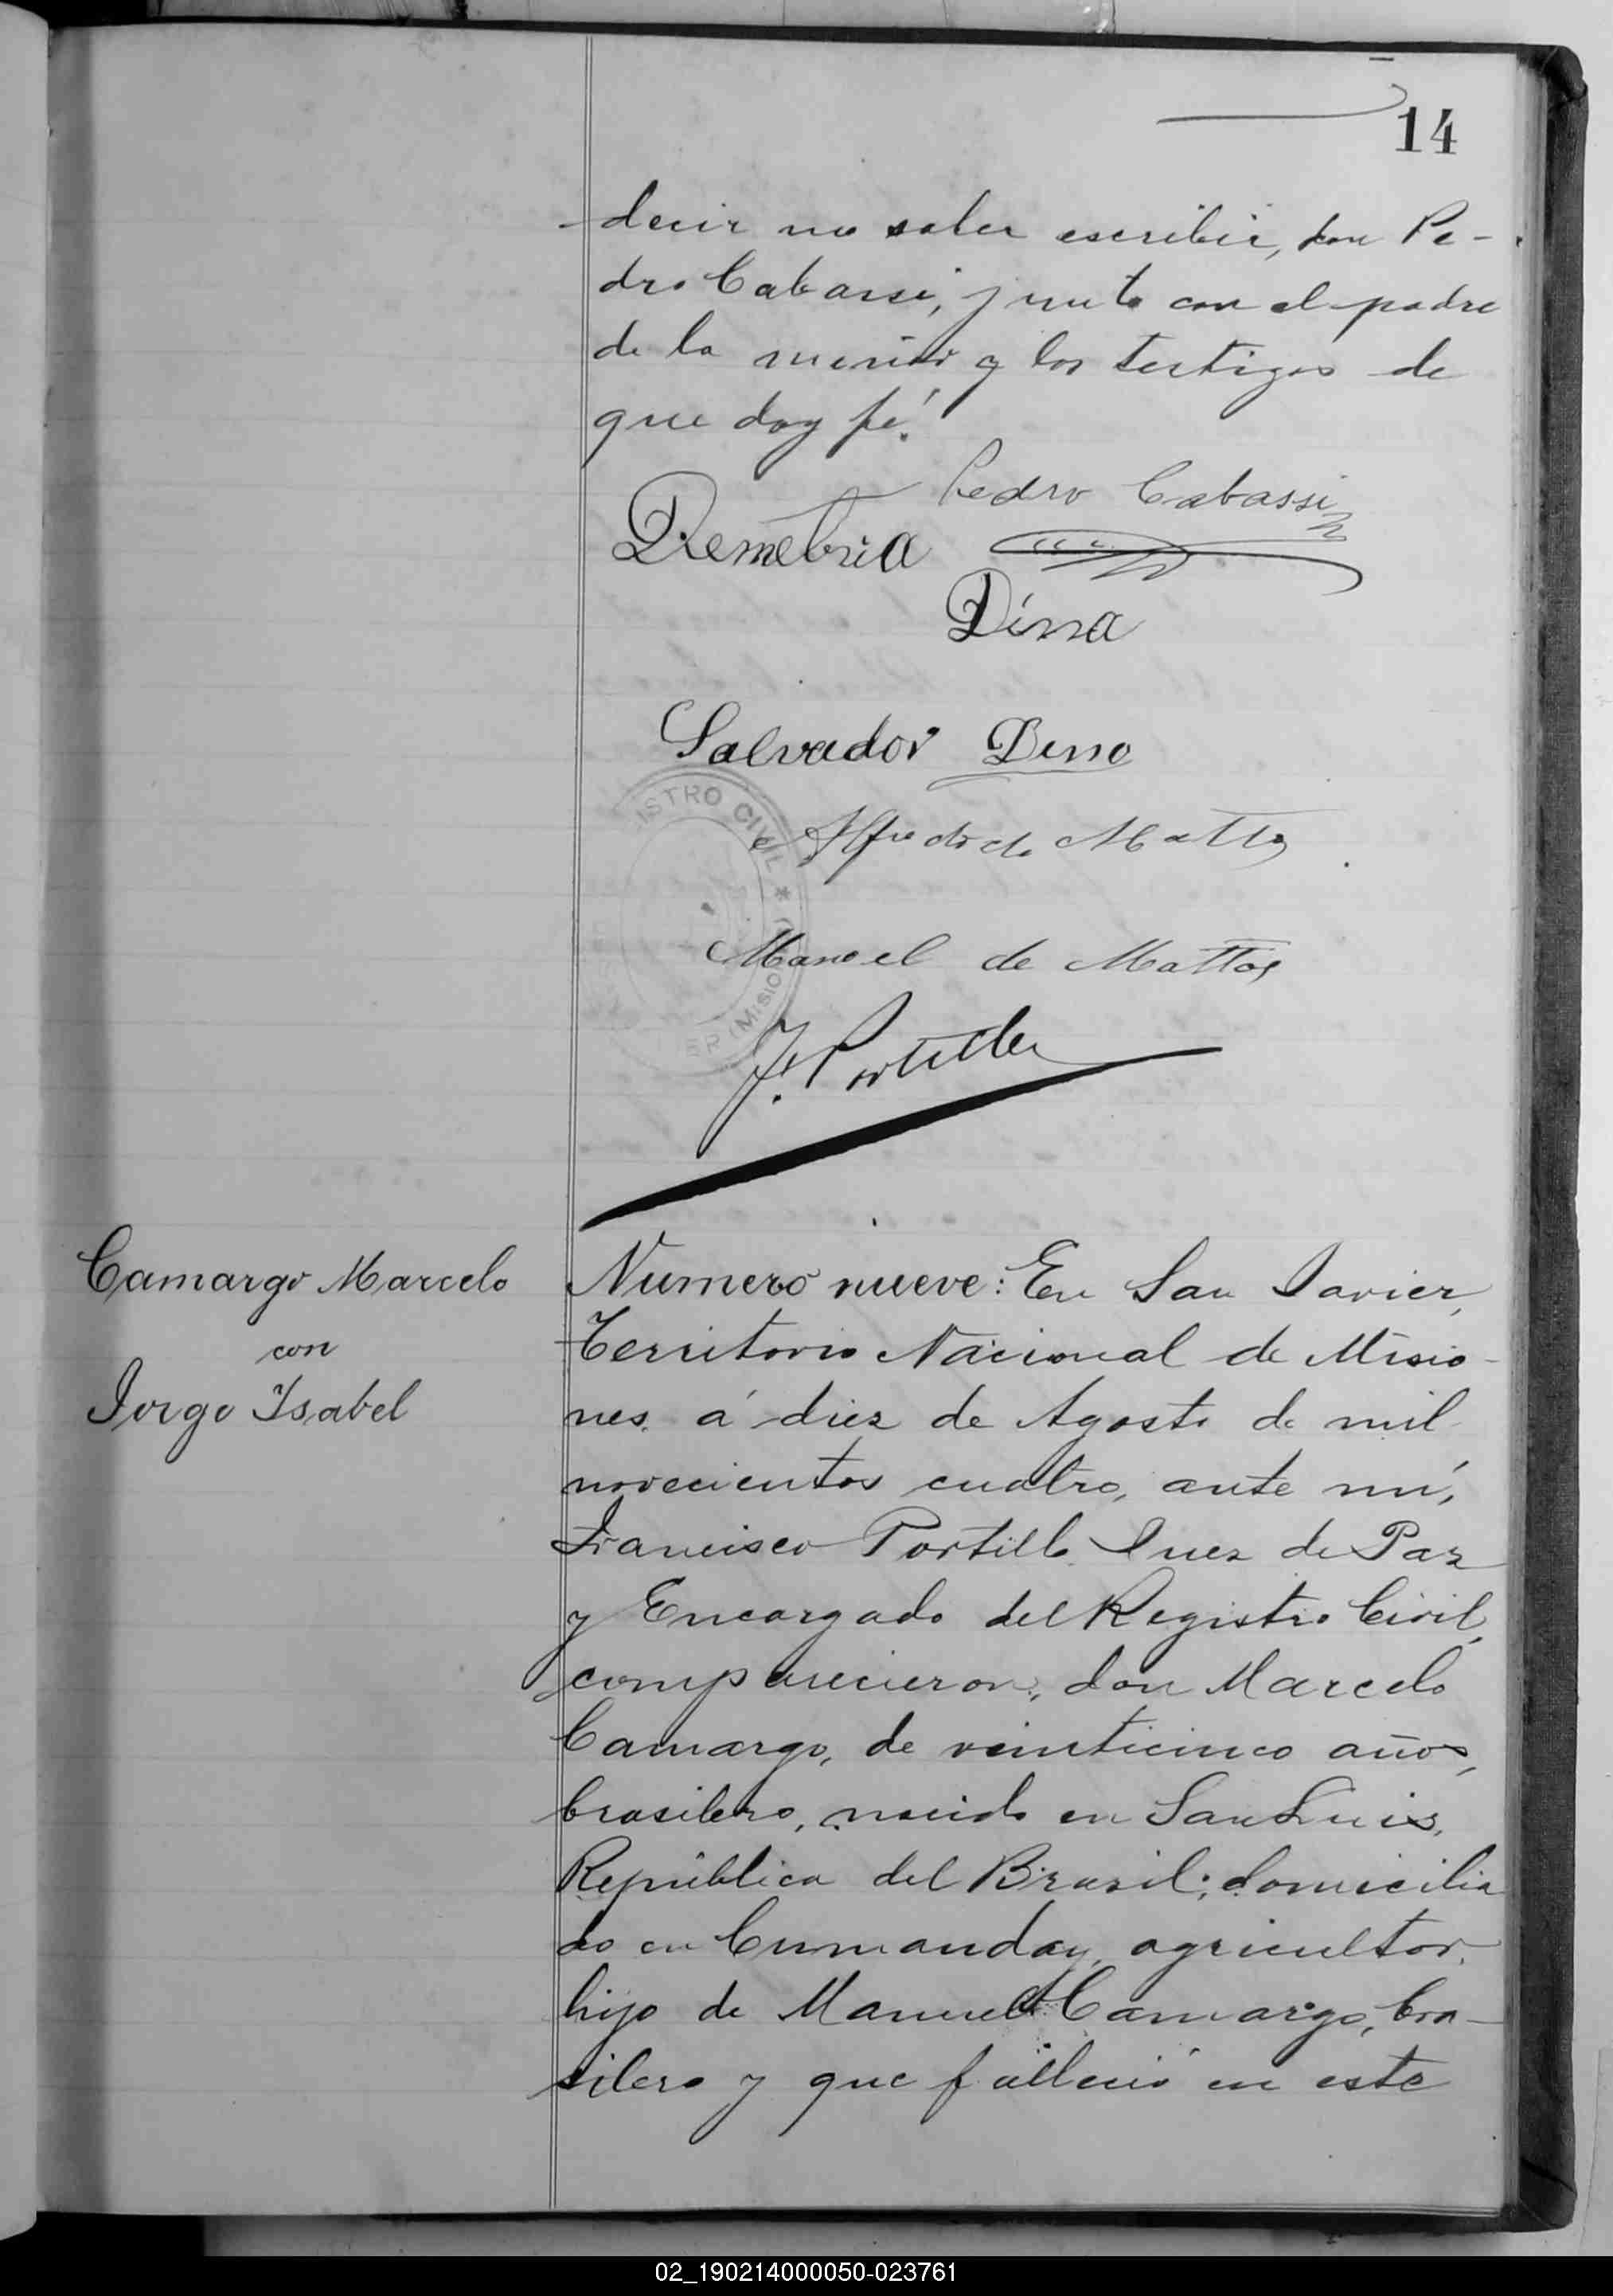 14
decir no saber escribir, don Pe-
dro Cabassi, junto con el padre
de la menor y los testigos de
que doy fé.
Pedro Cabassi
Demetria
Dina
Salvador Deno
ISTRO CIVIL *
Alfredo de Mattos
Manoel de Mattos
MISIO
J. Portillo
Camargo Marcelo
con
Jorge Isabel
Numero nueve: En San Javier,
Territorio Nacional de Misio-
nes á diez de Agosto de mil
novecientos cuatro, ante mí,
Francisco Portillo Juez de Paz
y Encargado del Registro Civil,
comparecieron, don Marcelo
Camargo, de veinticinco años,
brasilero, nacido en San Luis,
República del Brasil; domicilia
do en Cumanday, agricultor,
hijo de Manuel Camargo, bra-
silero y que falleció en este
02_190214000050-023761